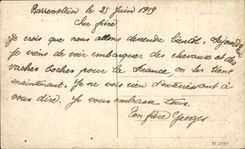 Parrenstein le 25 Juin 1919
Cher frère
Je crois que nous allons descendre bientôt, aujourd'hui
Je viens de voir embarquer des chevaux et des
vaches boches pour la France, on les tient
maintenant. Je ne vois rien d'intéressant à
vous dire. Je vous embrasse tous.
Ton frère Georges